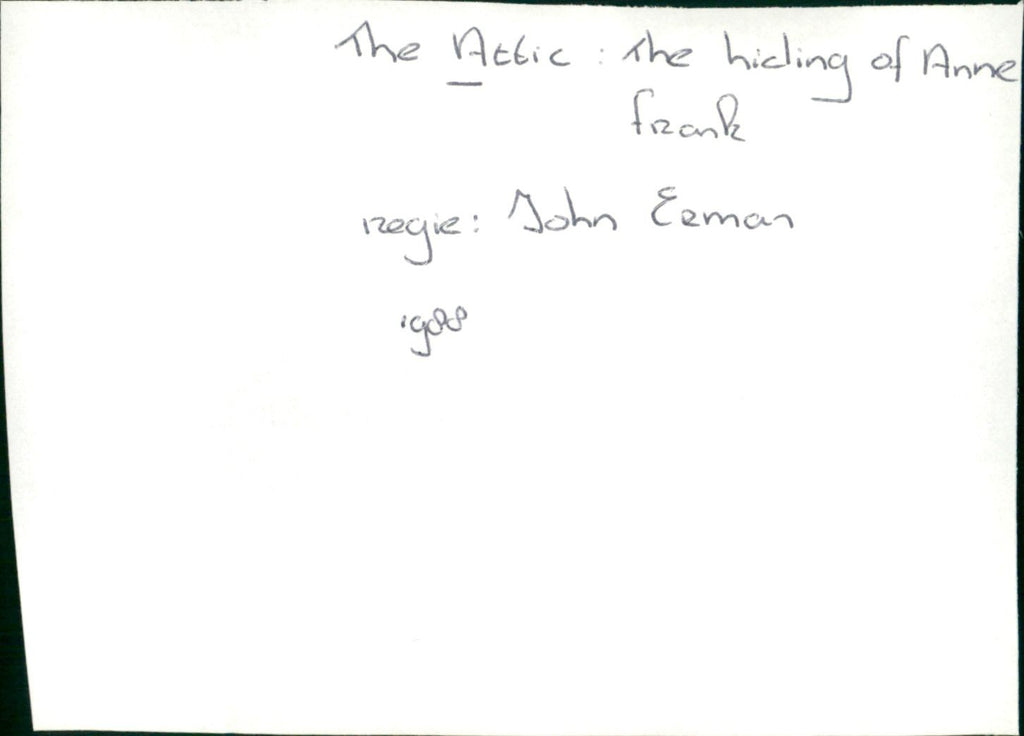 The Attic : The hiding of Anne
frank
regie: John Erman
1988